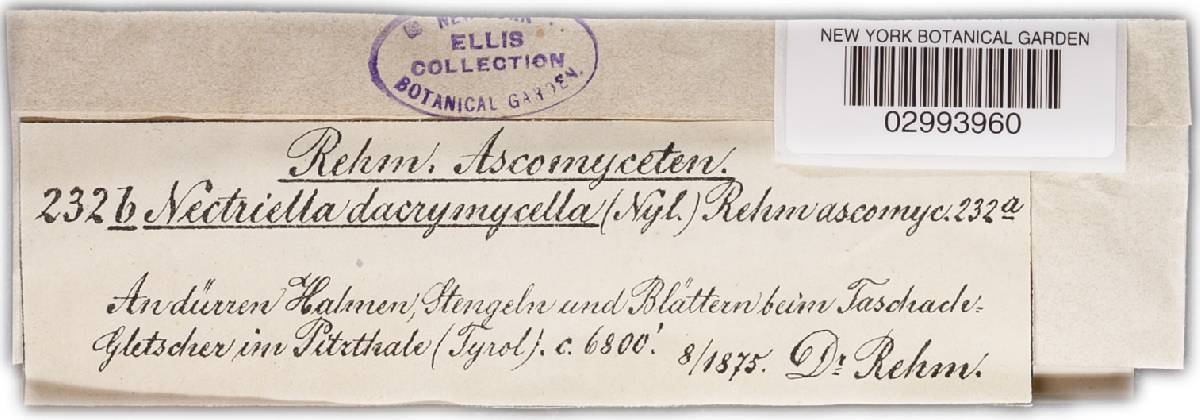 NEW YORK
ELLIS
COLLECTION
BOTANICAL GARDEN.
NEW YORK BOTANICAL GARDEN
02993960
Rehm. Ascomyceten.
232b Nectriella dacrymycella (Nyl.) Rehm ascomyc. 232a
An dürren Halmen, Stengeln und Blättern beim Taschach-
Gletscher im Pitzthale (Tyrol). c. 6800.' 8/1875. Dr Rehm.